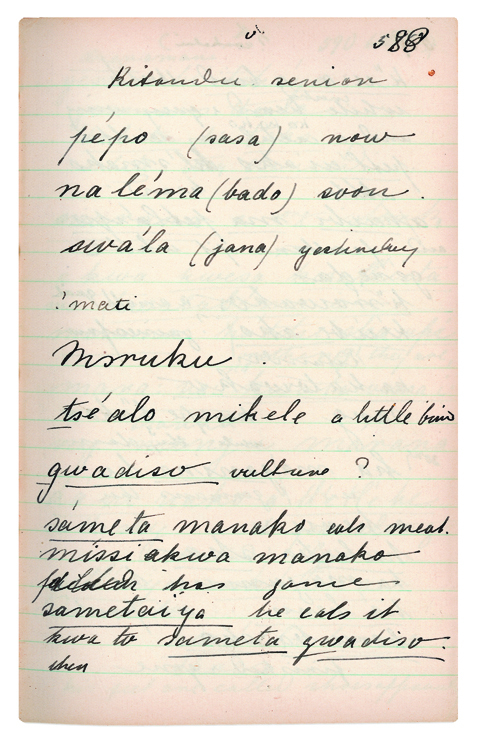 588
Kitandu senior
pépo (sasa) now
naléma (bado) soon.
swála (jana) yesterday
? mati
Msruku.
tséalo mikele a little bird
gwadiso vulture ?
sámeta manako eats meat.
missi akwa manako
has gone
sametaiya he eats it
kwa to sameta gwadiso.
then